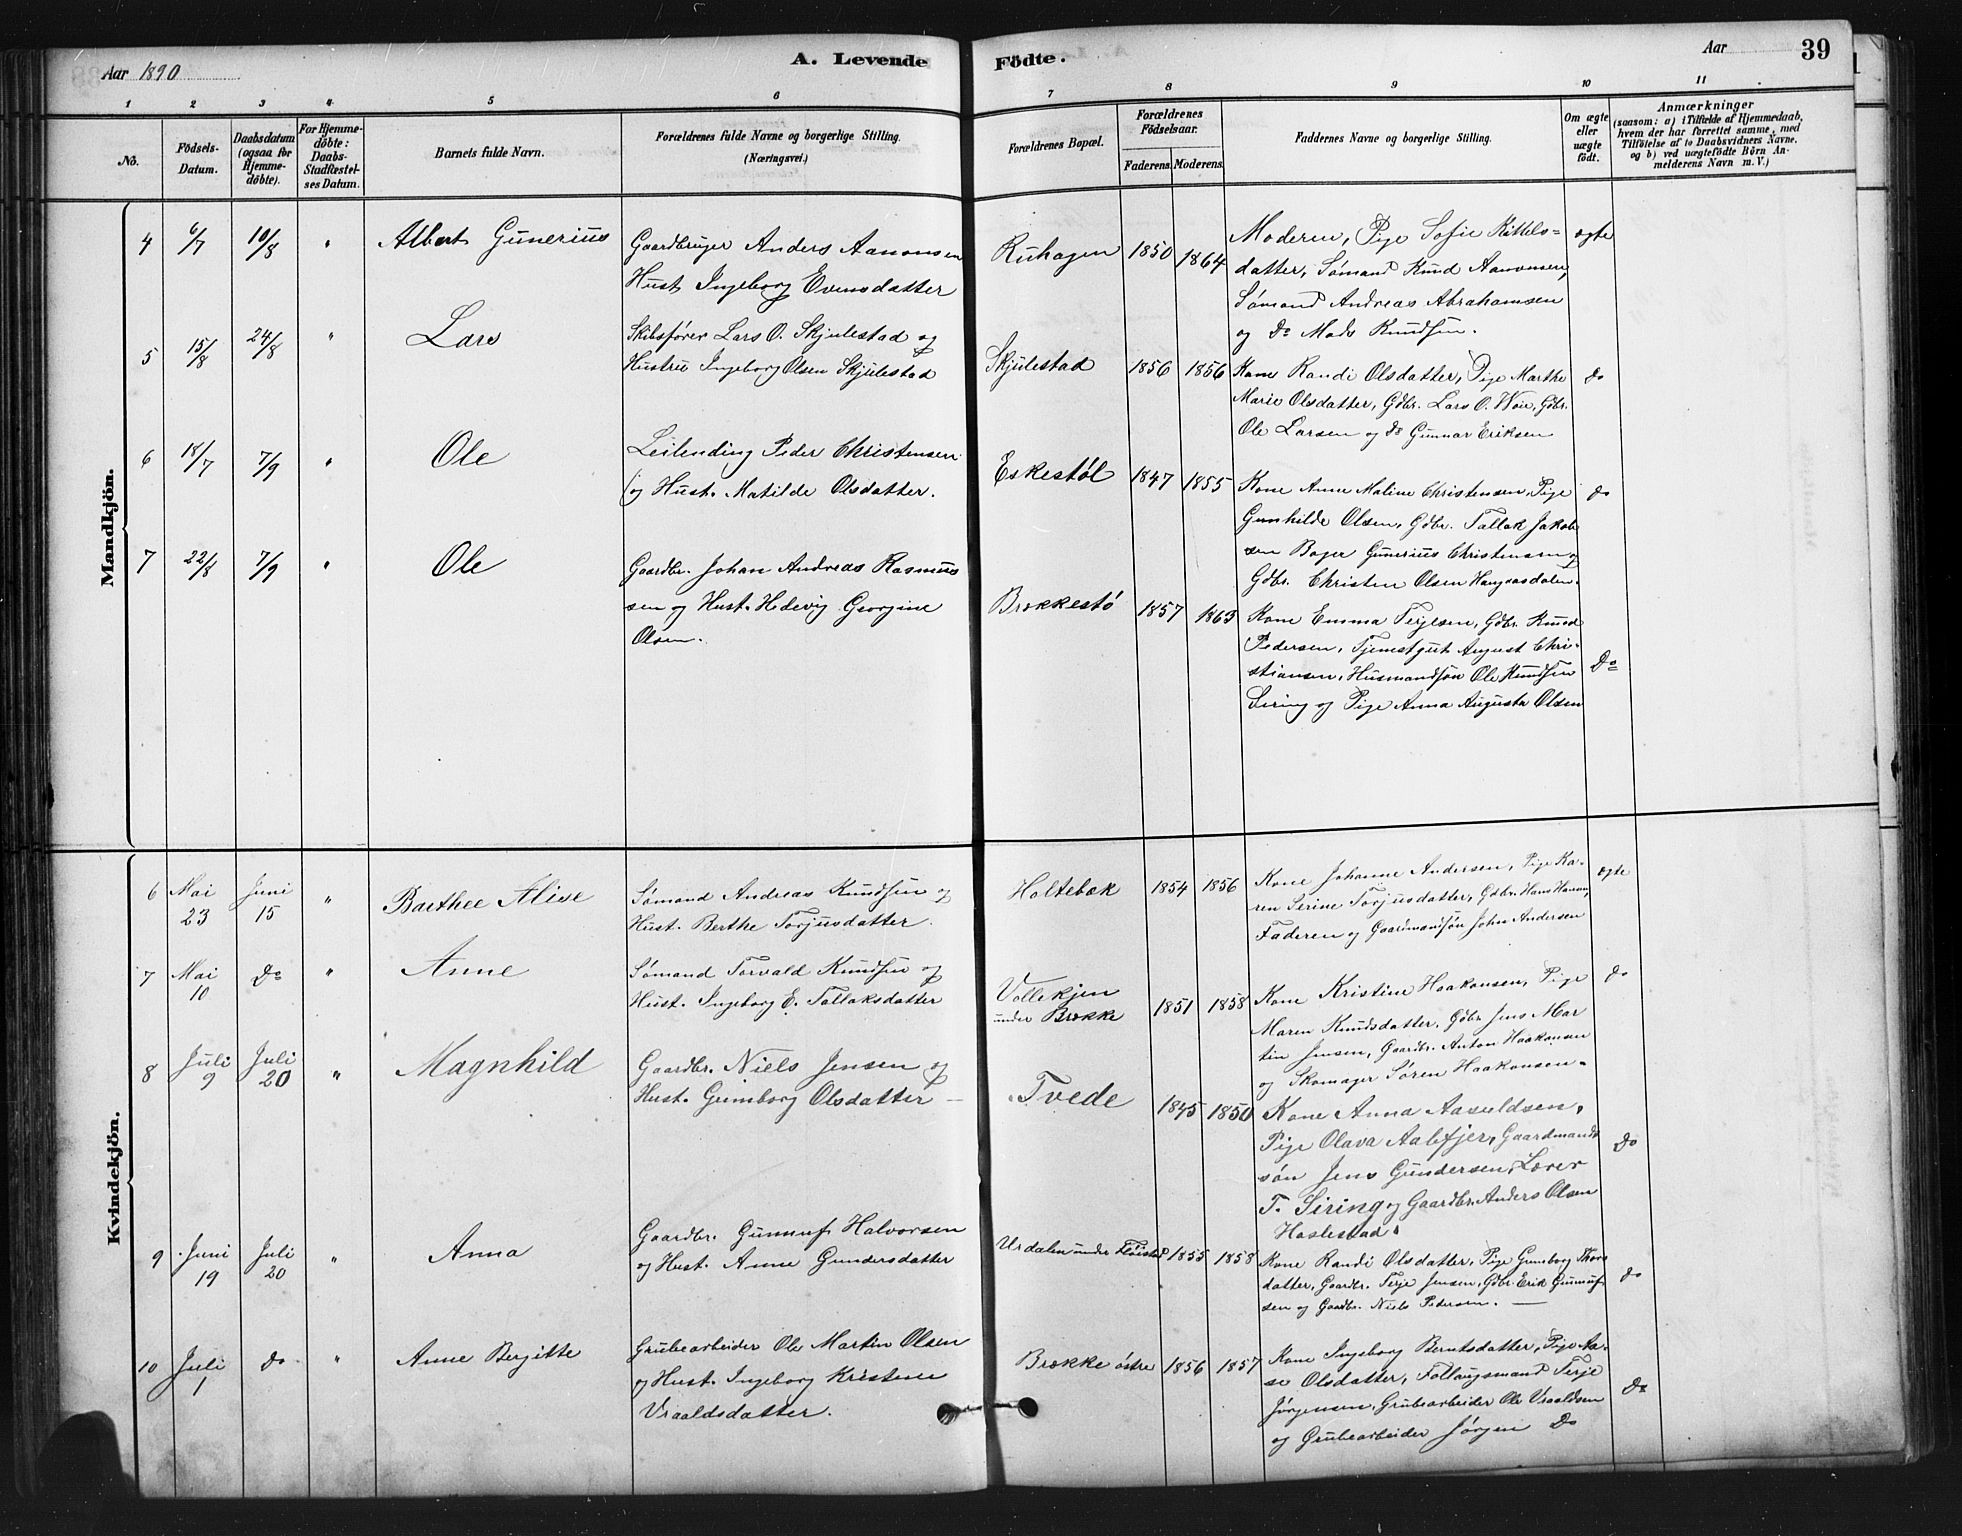 Aar 1890
A. Levende
Födte.
Aar
39
1
2
3
4
5
6
7
8
9
10
11
No.
Födsels-
Datum.
Daabsdatum
(ogsaa for
Hjemme-
döbte).
For Hjemme-
döbte:
Daabs-
Stadfæstel-
ses Datum.
Barnets fulde Navn.
Forældrenes fulde Navne og borgerlige Stilling.
(Næringsvei.)
Forældrenes Bopæl.
Forældrenes
Födselsaar.
Faderens.
Moderens.
Faddernes Navne og borgerlige Stilling.
Om ægte
eller
uægte
födt.
Anmærkninger
(saasom: a) i Tilfælde af Hjemmedaab,
hvem der har forrettet samme, med
Tilföielse af to Daabsvidners Navne,
og b) ved uægtefödte Börn An-
melderens Navn m. V.)
Mandkjön.
4
6/7
10/8
"
Albert Gunerius
Gaardbruger Anders Aanonsen
Hust Ingeborg Evensdatter
1850
1864
Moderen, Pige Sofie Kittels-
datter, Sømand Knud Aanonsen,
Sømand Andreas Abrahamsen
og Do Mads Knudsen.
ægte
5
15/8
24/8
"
Lars
Skibsfører Lars O. Skjulestad og
Hustru Ingeborg Olsen Skjulestad
Skjulestad
1856
1856
Kone Randi Olsdatter, Pige Marthe
Marie Olsdatter, Gdbr. Lars O. Woie, Gdbr.
Ole Larsen og Do Gunnar Eriksen
do
6
18/7
7/9
"
Ole
Leilending Peder Christensen
og Hust. Matilde Olsdatter.
Eskestøl
1847
1855
Kone Anne Maline Christensen, Pige
Gunhilde Olsen, Gdbr. Tallak Jakob-
sen Bager Gunerius Christensen og
Gdbr. Christen Olsen
do
7
22/8
7/9
"
Ole
Gaardbr. Johan Andreas Rasmus
sen og Hust. Hedevig Georgine
Olsen.
Brækkestø
1857
1863
Kone Emma Terjesen, Gdbr. Knud
Pedersen, Tjenstgut August Chri-
stiansen, Husmandsøn Ole Knudsen
Siring og Pige Anna Augusta Olsen
Do
Kvindekjön.
6
Mai
23
Juni
15
"
Barthee Alise
Sømand Andreas Knudsen og
Hust. Berthe Torjusdatter.
Holtebæk
1854
1856
Kone Johanne Andersen, Pige Ka-
ren Serine Torjusdatter, Gdbr. Hans
Faderen og Gaardmandsøn John Andersen
ægte
7
Mai
10
Do
"
Anne
Sømand Torvald Knudsen og
Hust. Ingeborg E. Tallaksdatter
Vollekjen
under Brække
1851
1858
Kone Kristine Haakonsen, Pige
Maren Knudsdatter, Gdbr. Jens Mar
tin Jensen, Gaardbr. Anton Haakonsen
og Skomager Søren Haakonsen.
do
8
Juli
9
Juli
20
"
Magnhild
Gaardbr. Niels Jensen og
Hust. Gunborg Olsdatter
Tvede
1845
1850
Kone Anna Aasuldsen,
Pige Olava Aabfjer, Gaardmands
søn Jens Gundersen, Lærer
T. Siring og Gaardbr. Anders Olsen
Haslestad.
Do
9
Juni
19
Juli
20
"
Anna
Gaardbr. Gunnuf Halvorsen
og Hust. Anne Gundersdatter
Urdalen under Fløistad
1855
1858
Kone Randi Olsdatter, Pige Gunborg
datter, Gaardbr. Terje Jensen, Gdbr. Erik Gunnuf
sen og Gaardbr. Niels Pedersen.
do
10
Juli
1
do
"
Anne Bergitte
Grubearbeider Ole Martin Olsen
og Hust. Ingeborg Kristine
Vraaldsdatter.
Brække østre
1856
1857
Kone Ingeborg Berntsdatter, Pige Aa-
se Olsdatter, Follaugsmand Terje
Jørgensen, Grubearbeider Ole Vraaldsen
og Grubearbeider Jørgen Do
Do